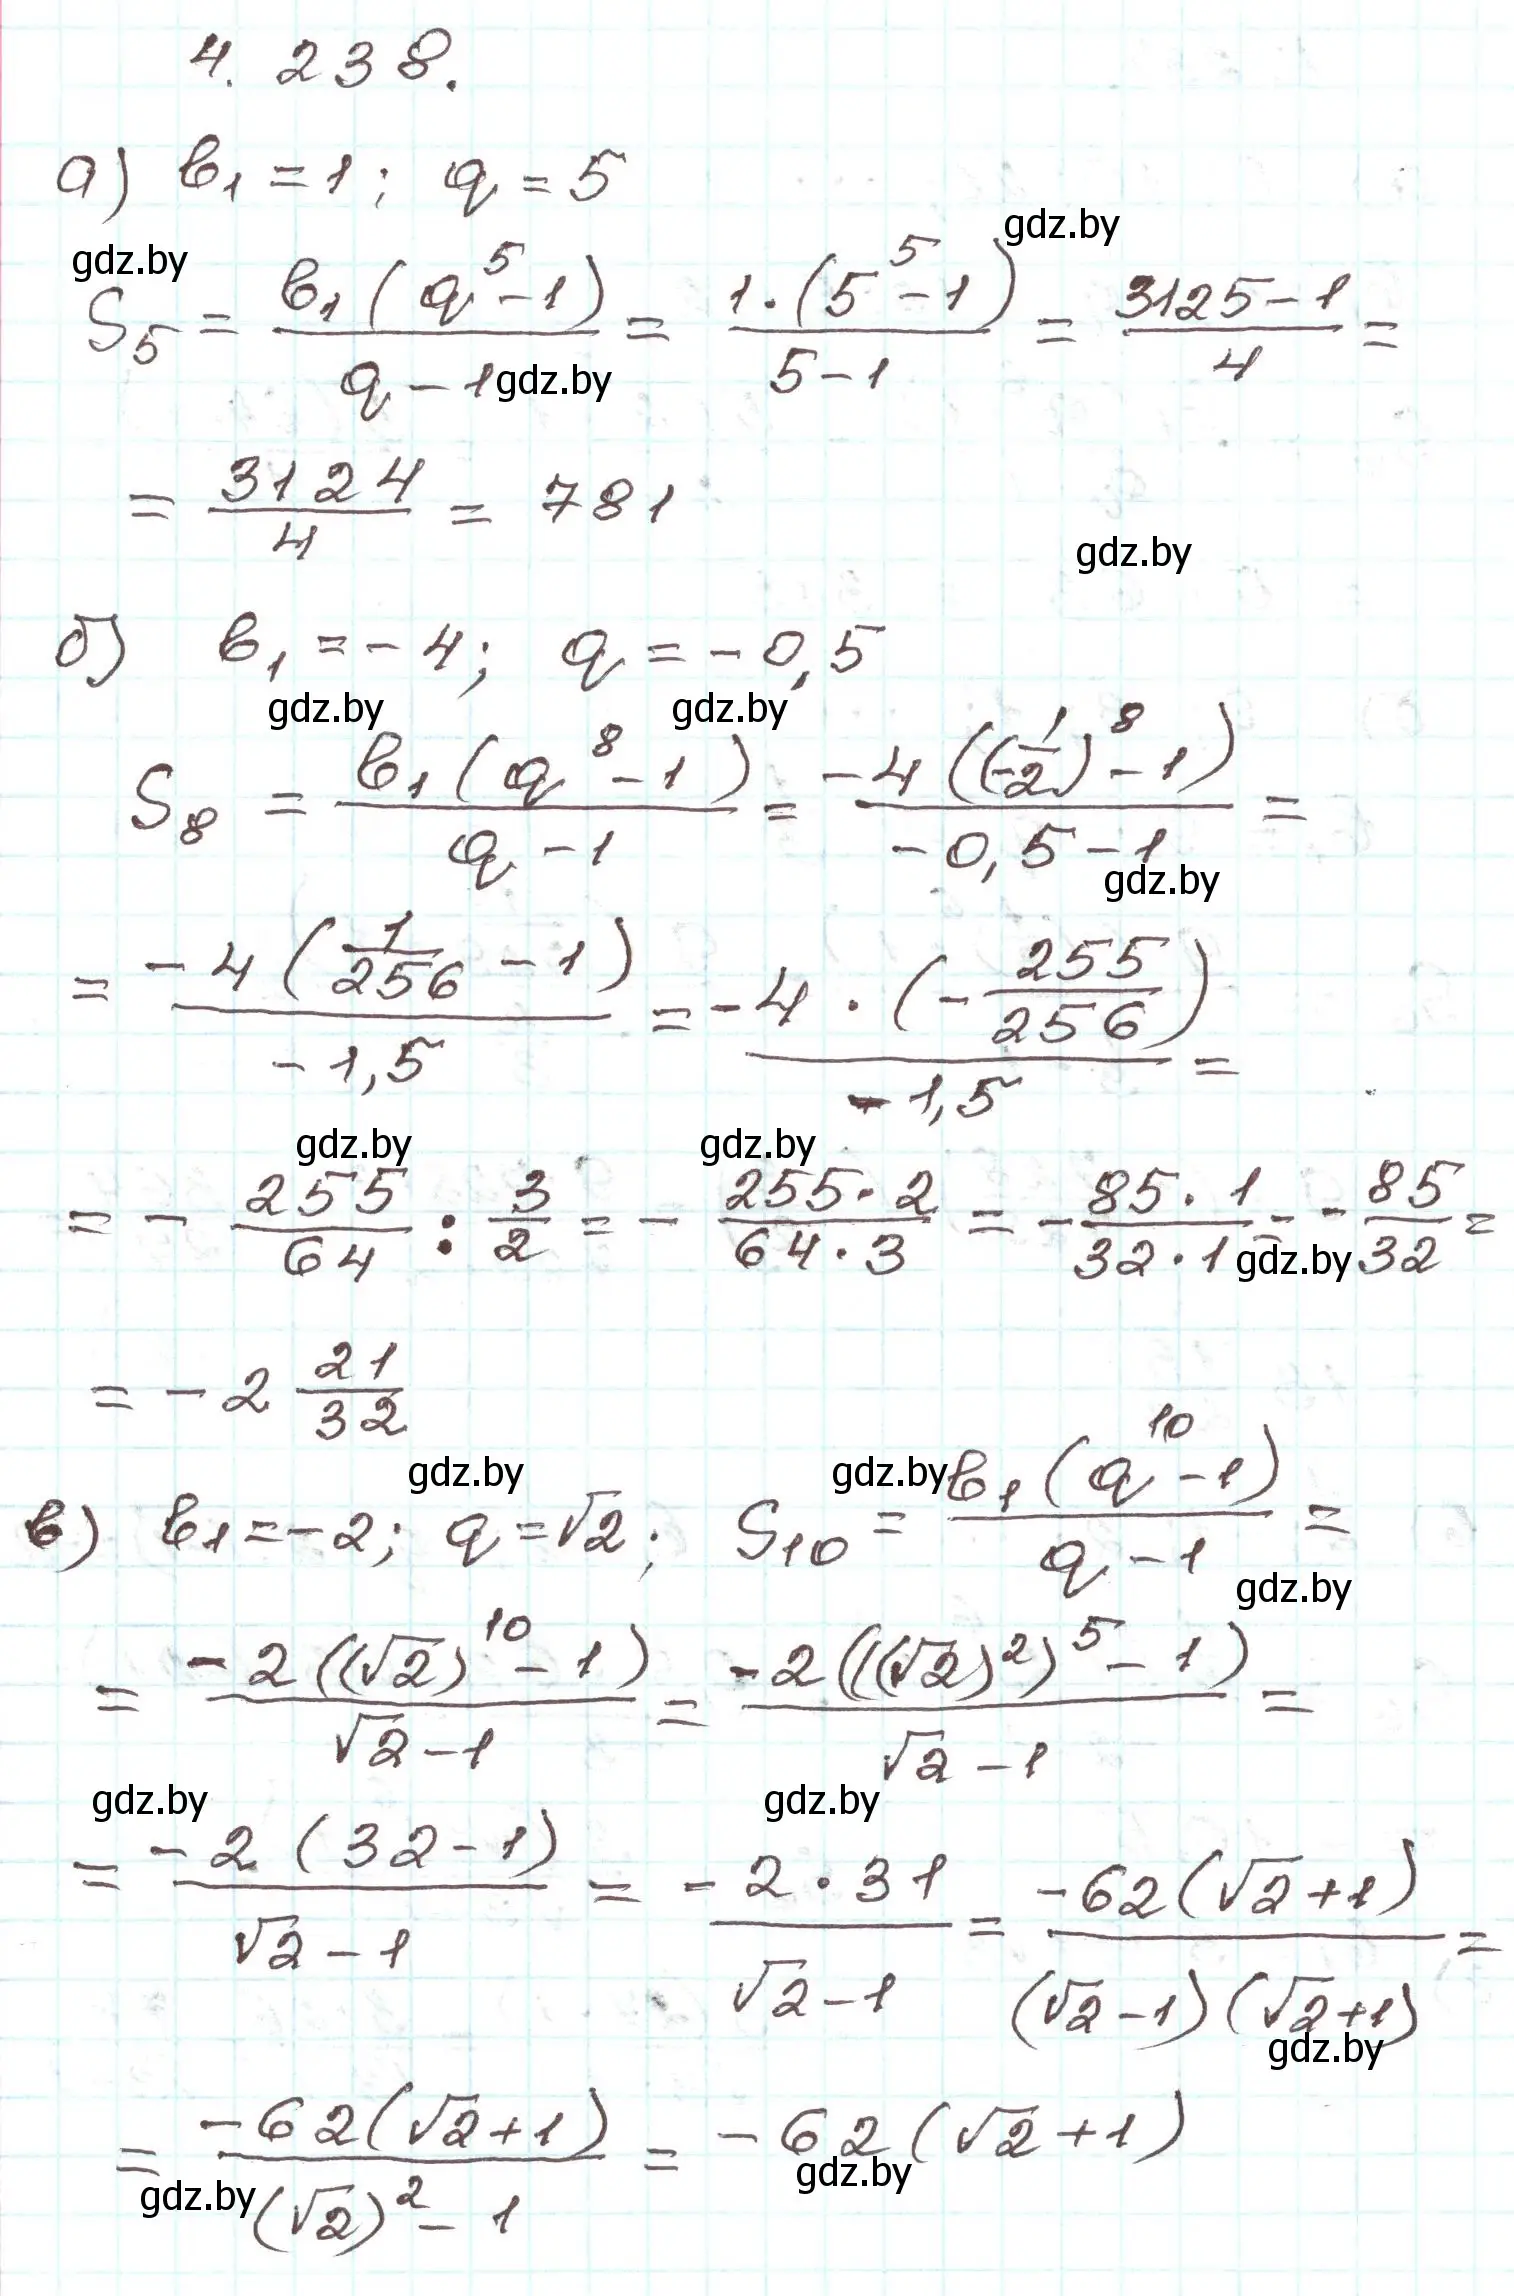 4. 238.
а) b₁ = 1; q = 5
gdz.by gdz.by
S₅ = b₁(q⁵ - 1)/(q - 1) = 1·(5⁵ - 1)/(5 - 1) = (3125 - 1)/4 =
gdz.by
= 3124/4 = 781
gdz.by
б) b₁ = -4; q = -0,5
gdz.by gdz.by
S₈ = b₁(q⁸ - 1)/(q - 1) = -4((-1/2)⁸ - 1)/(-0,5 - 1) =
gdz.by
= -4(1/256 - 1)/(-1,5) = -4·(-255/256)/(-1,5) =
gdz.by gdz.by
= - 255/64 : 3/2 = - (255·2)/(64·3) = - (85·1)/(32·1) = - 85/32 =
gdz.by
= -2 21/32
gdz.by gdz.by
в) b₁ = -2; q = √2; S₁₀ = b₁(q¹⁰ - 1)/(q - 1) =
gdz.by
= -2((√2)¹⁰ - 1)/(√2 - 1) = -2(((√2)²)⁵ - 1)/(√2 - 1) =
gdz.by gdz.by
= -2(32 - 1)/(√2 - 1) = -2·31/(√2 - 1) = -62(√2 + 1)/((√2 - 1)(√2 + 1)) =
gdz.by
= -62(√2 + 1)/((√2)² - 1) = -62(√2 + 1)
gdz.by gdz.by